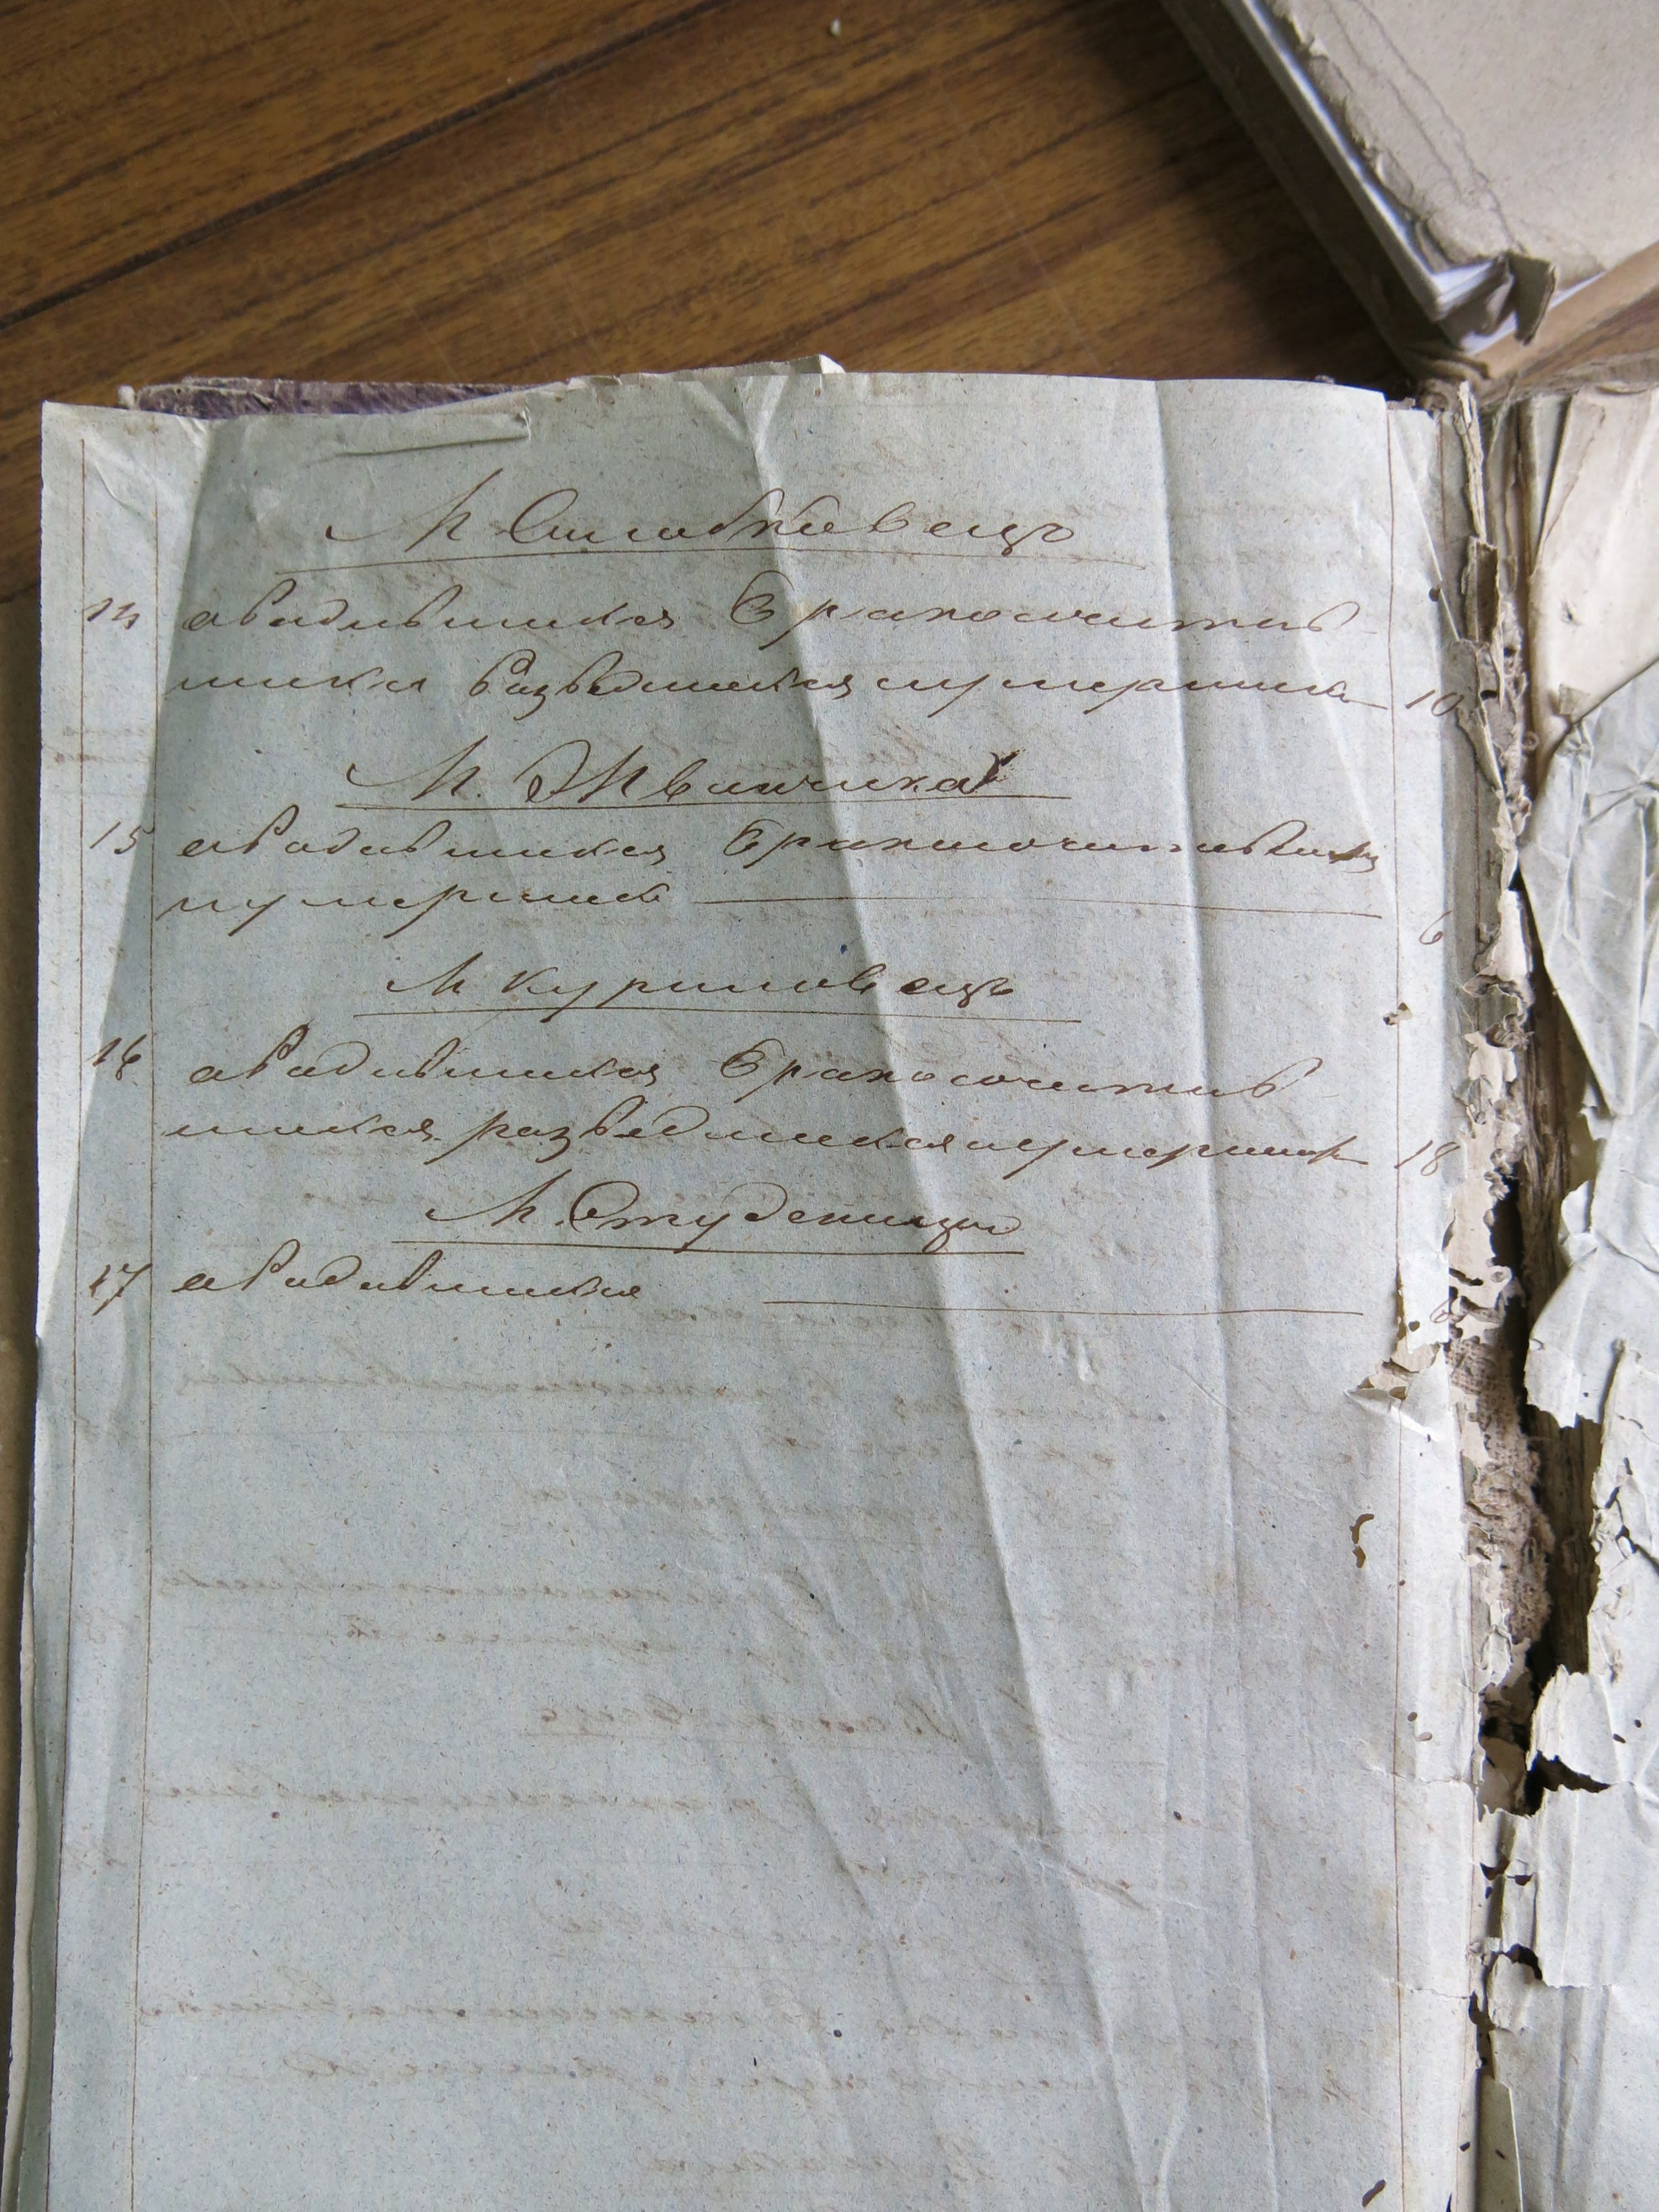 М Снитковецъ
14 ородившихся Бракосочетив
шихся Разведшихся и умершихъ 10
М. Жванчика
15 ородившихся Бракосочетившихся
и умершихъ 6
М Куриловецъ
16 ородившихся Бракосочетив
шихся разведшихся и умершихъ 18
М. Студеница
17 ородившихся 6